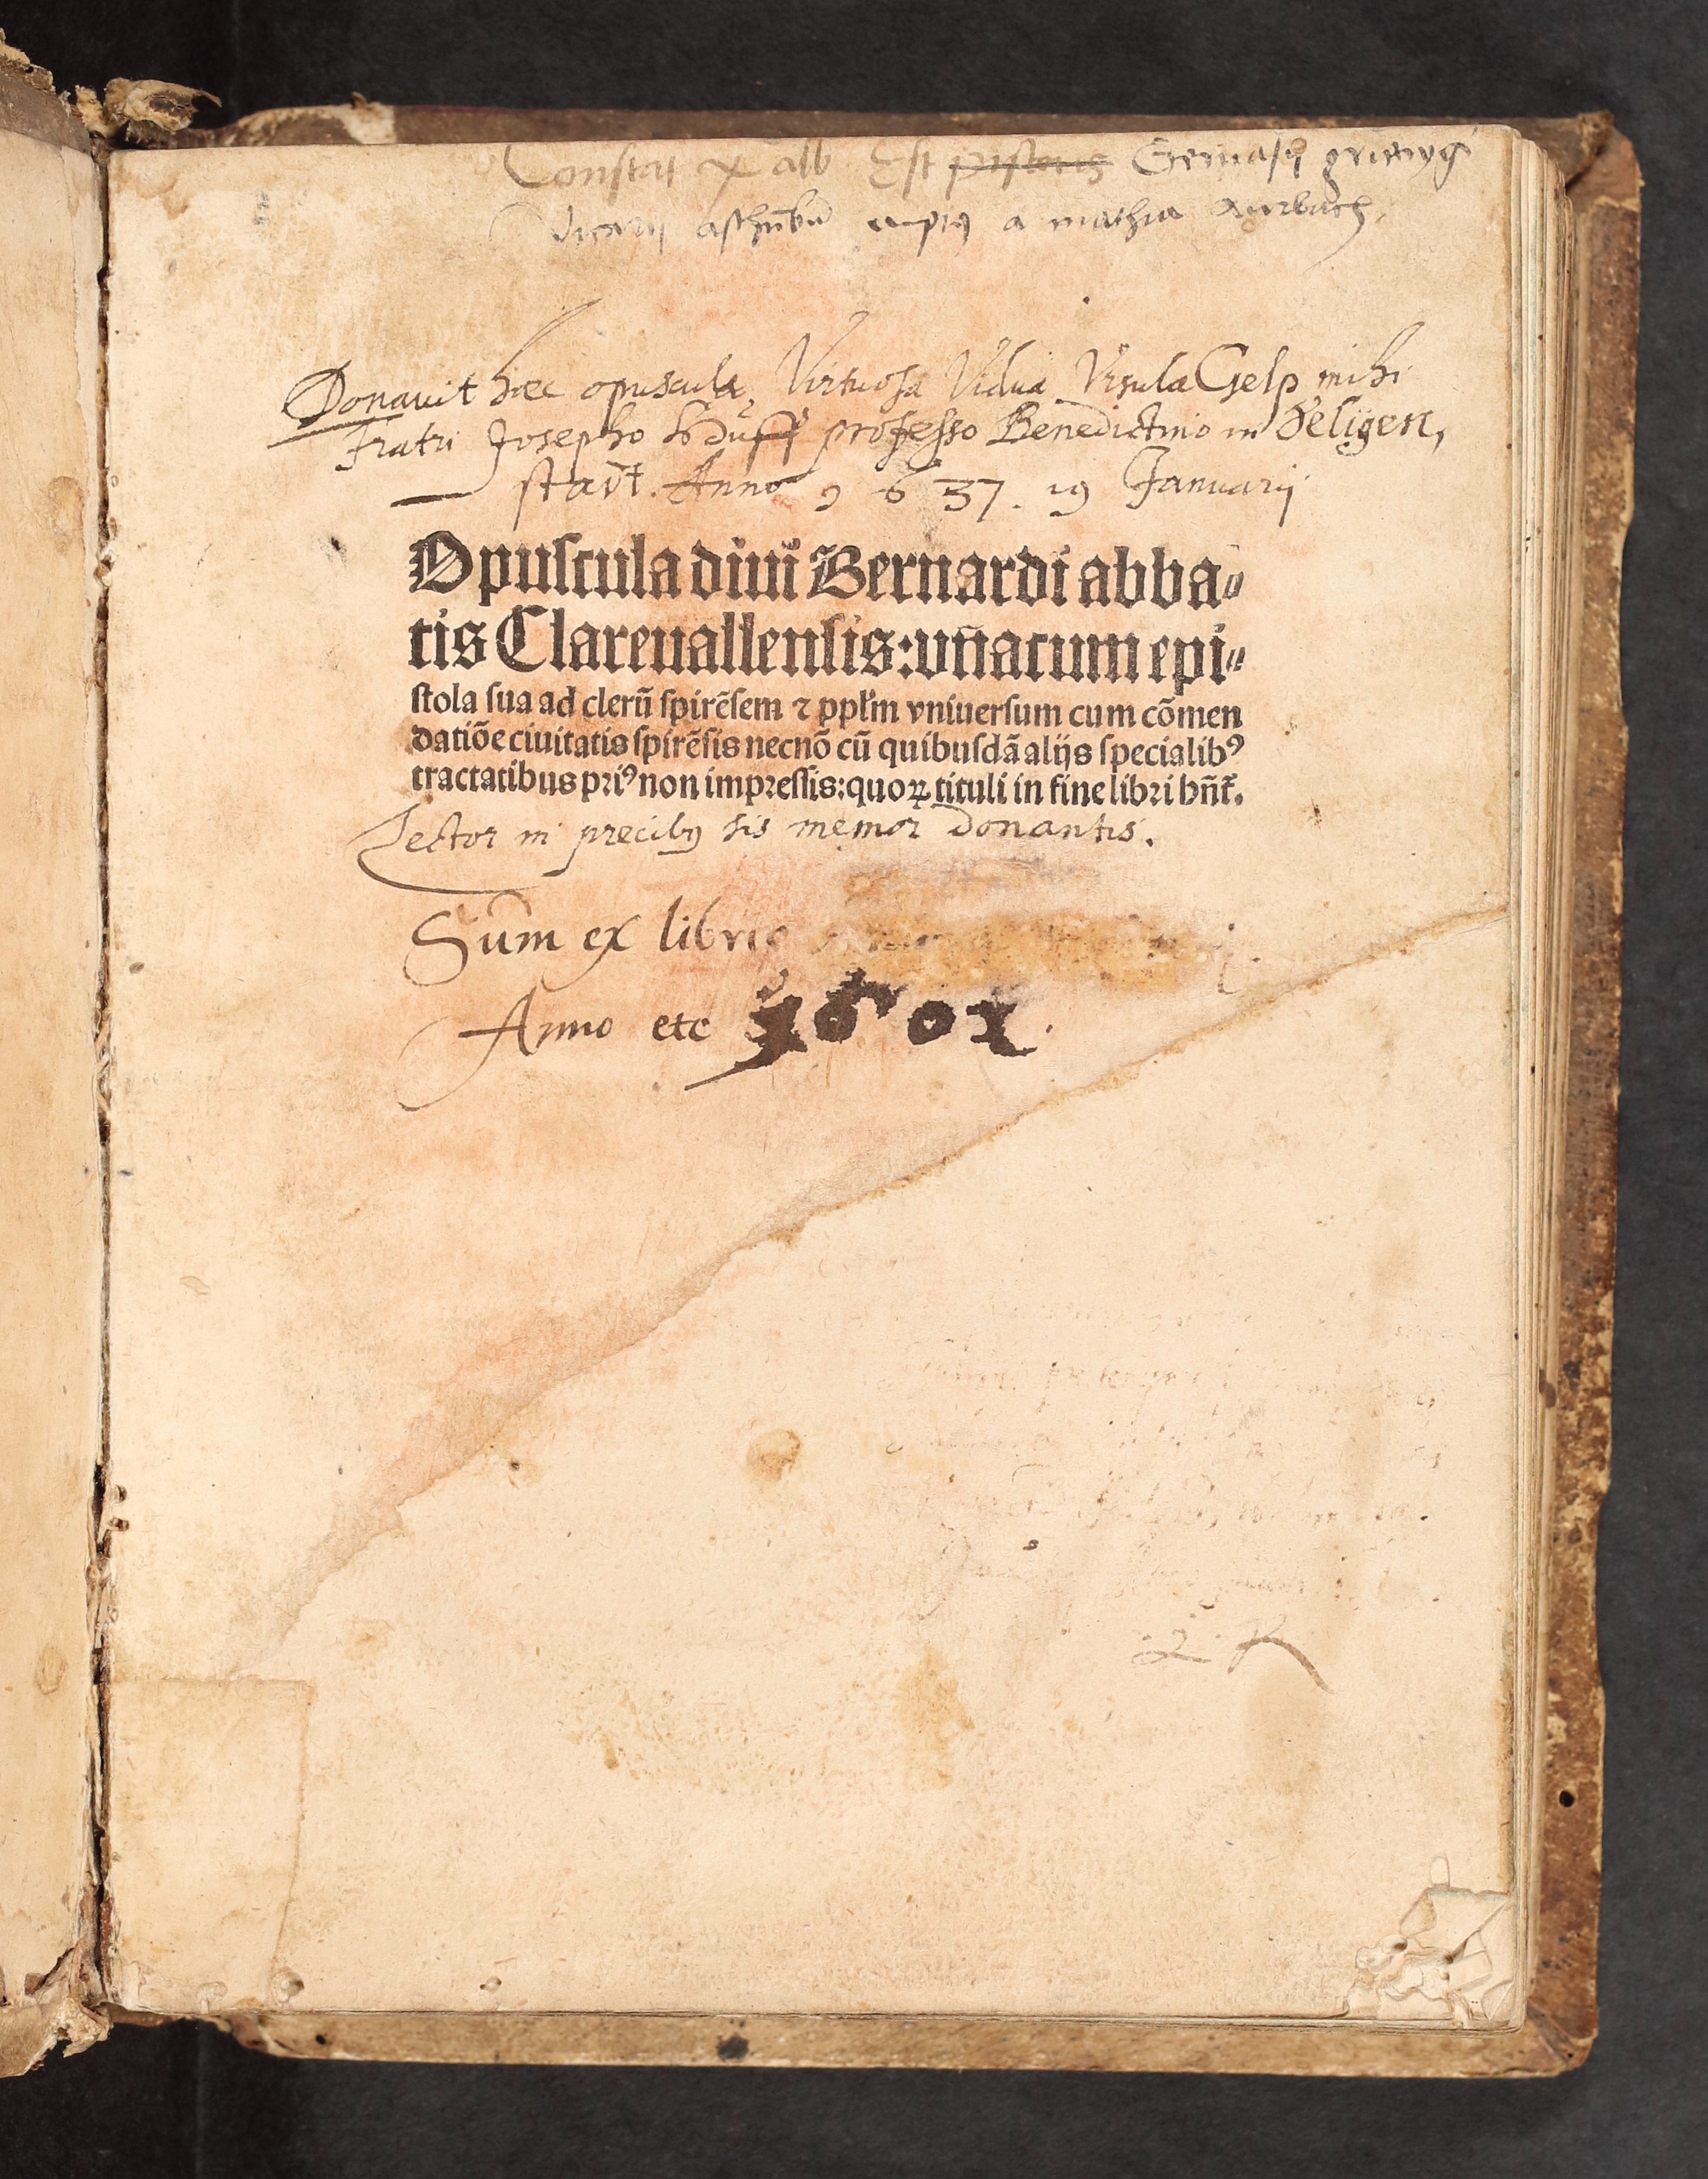 Constat x alb Est pistoris Geruasij
vicarij empt9 a mathia Aurbach.
Donauit hæc opuscula, Virtuosa Vidua Vrsula Gelp mihi
Fratri Josepho professo Benedictino in Seligen,
stadt. Anno 1637. 19 Januarij
Opuſcula diui Bernardi abba⸗
tis Clareuallenſis: vn̄acum epi⸗
ſtola ſua ad clerū ſpirēſem ⁊ ppl̄m vniuerſum cum cōmen
datiōe ciuitatis ſpirēſis necnō cū quibuſdā alijs ſpecialibꝰ
tractatibus priꝰ non impreſſis: quoꝝ tituli in fine libri hn̄t̄.
Lector in precibꝰ sis memor donantis.
Sum ex libris
Anno etc 1601.
.2. R